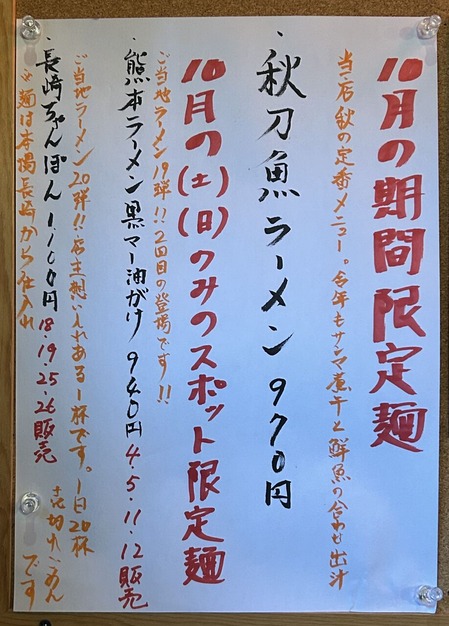 10月の期間限定麺
当店秋の定番メニュー。今年もサンマ煮干と鮮魚の合わせ出汁
・秋刀魚ラーメン 970円
10月の(土)(日)のみのスポット限定麺
ご当地ラーメン19弾!! 2回目の登場です!!
・熊本ラーメン黒マー油がけ 940円 4.5.11.12販売
ご当地ラーメン20弾!! 店主想い入れある1杯です。1日20杯
・長崎ちゃんぽん 1,100円 18.19.25.26販売
※麺は本場長崎から仕入れ
売切れごめん
です